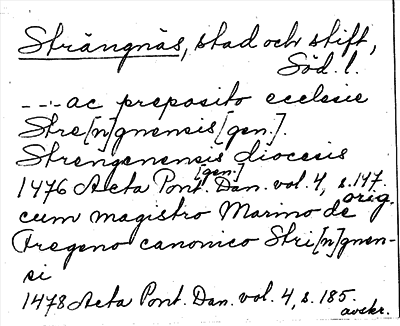 Strängnäs, stad och stift,
Söd. l.
--- ac preposito ecclesie
Stre[n]gnensis [gen.].
Strengenensis diocesis
[gen.]
1476 Acta Pont. Dan. vol. 4, s. 147.
orig.
cum magistro Marino de
Fregeno canonico Stri[n]gnen-
si
1478 Acta Pont. Dan. vol. 4, s. 185.
avskr.